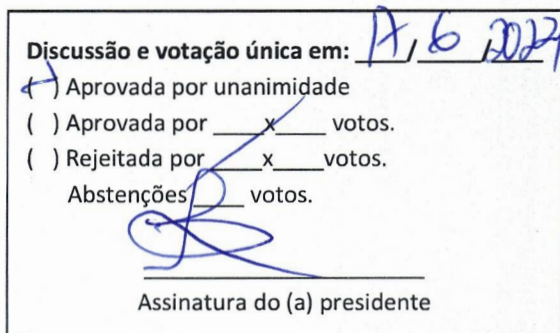 Discussão e votação única em: 17/6/2024
( ) Aprovada por unanimidade
( ) Aprovada por ____x____ votos.
( ) Rejeitada por ____x____votos.
Abstenções____ votos.
Assinatura do (a) presidente